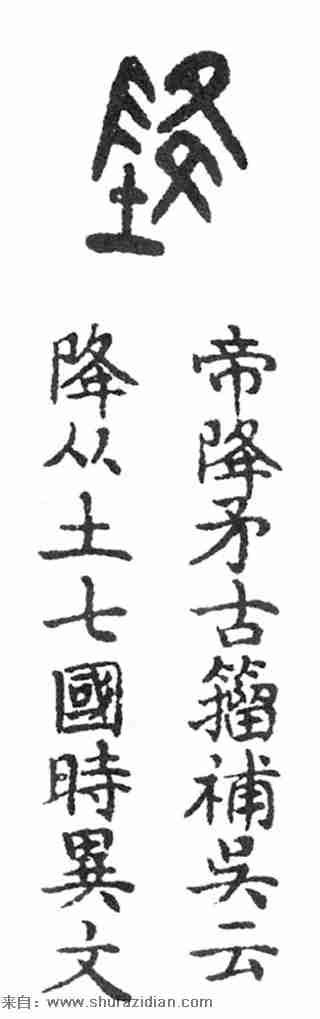 帝降矛古籀補吳云
降从土七國時異文
来自：www.shufazidian.com